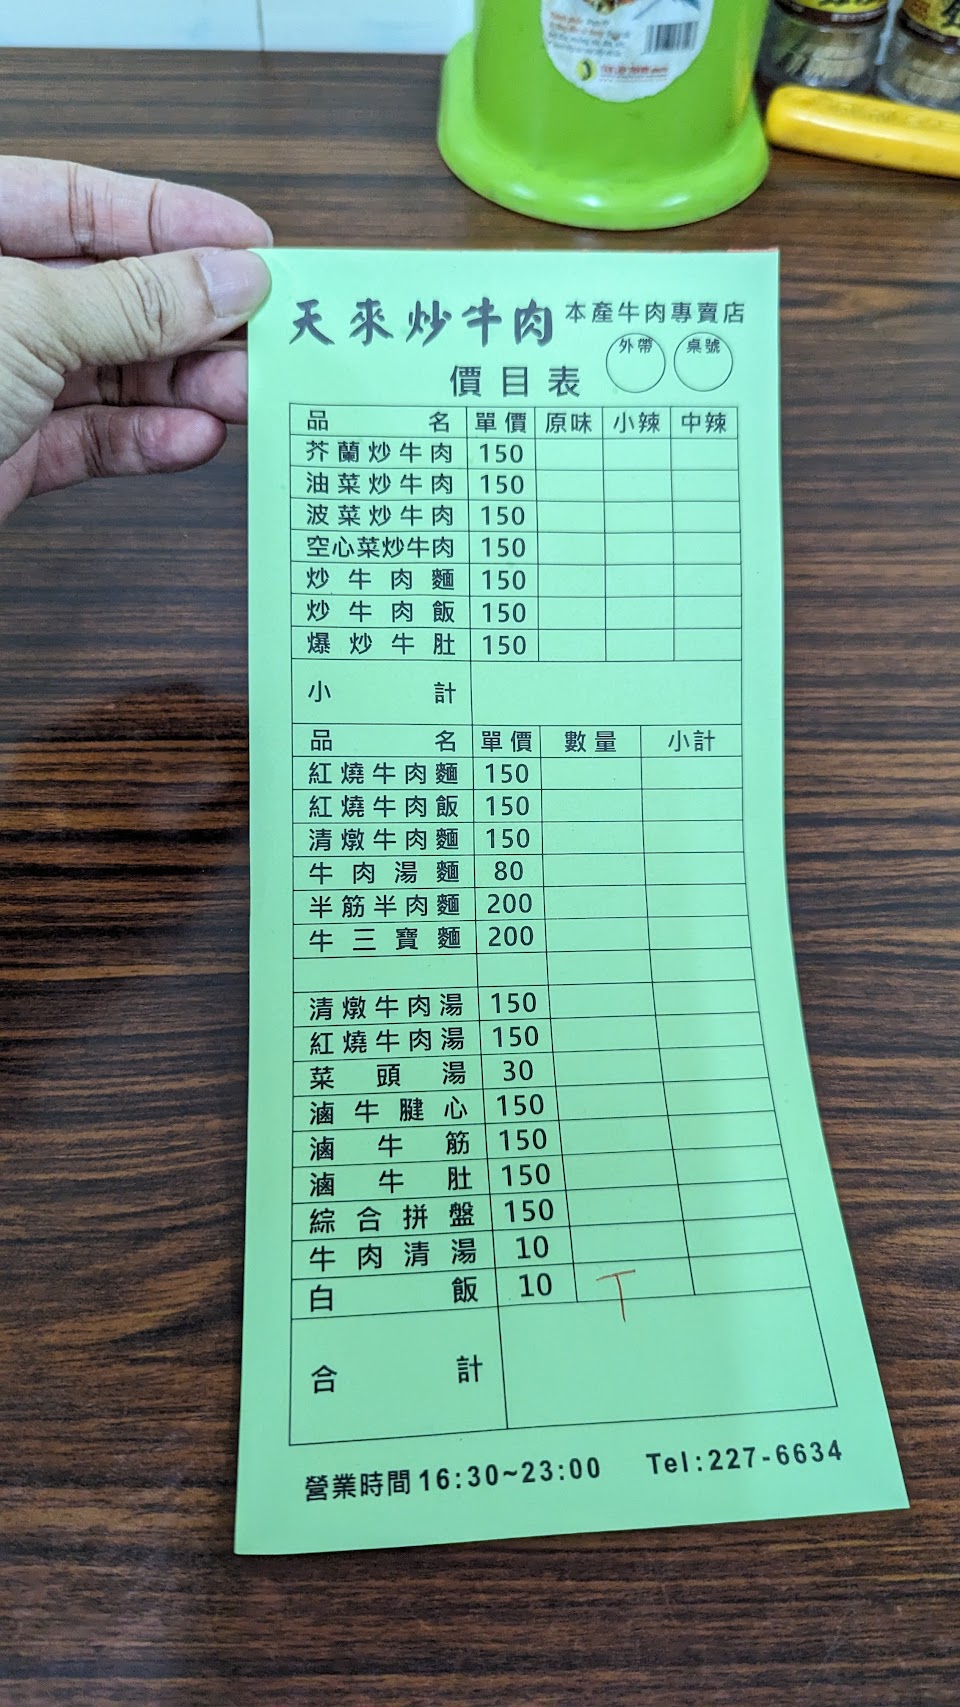 天來炒牛肉 本產牛肉專賣店
外帶 桌號
價目表
品名 單價 原味 小辣 中辣
芥蘭炒牛肉 150
油菜炒牛肉 150
波菜炒牛肉 150
空心菜炒牛肉 150
炒牛肉麵 150
炒牛肉飯 150
爆炒牛肚 150
小計
品名 單價 數量 小計
紅燒牛肉麵 150
紅燒牛肉飯 150
清燉牛肉麵 150
牛肉湯麵 80
半筋半肉麵 200
牛三寶麵 200
清燉牛肉湯 150
紅燒牛肉湯 150
菜頭湯 30
滷牛腱心 150
滷牛筋 150
滷牛肚 150
綜合拼盤 150
牛肉清湯 10
白飯 10 T
合計
營業時間16:30~23:00 Tel:227-6634